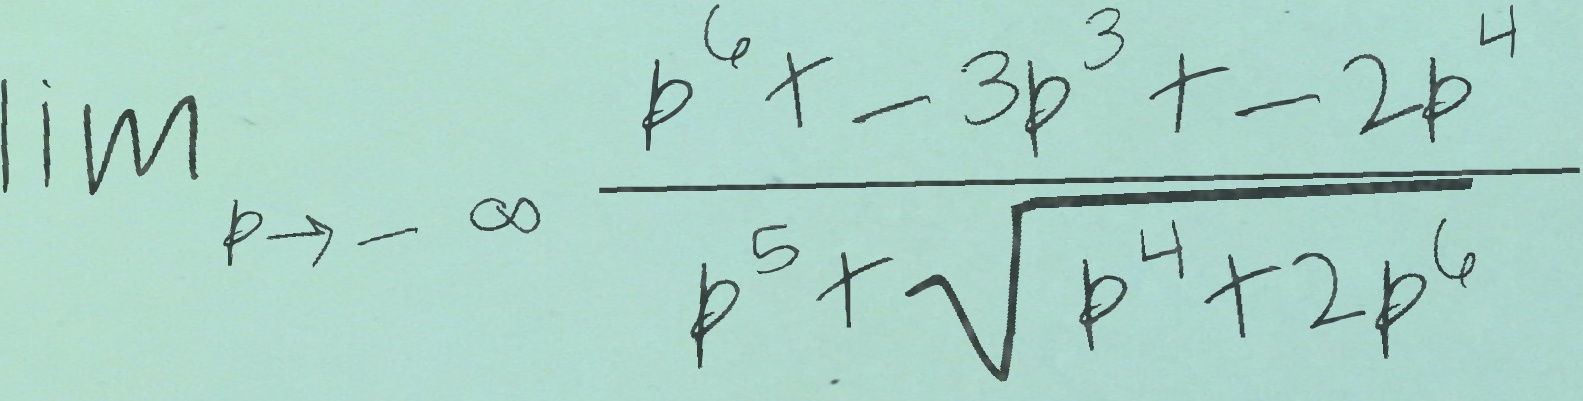 \lim_{p \to -\infty} \frac{p^6 + -3p^3 + -2p^4}{p^5 + \sqrt{p^4 + 2p^6}}